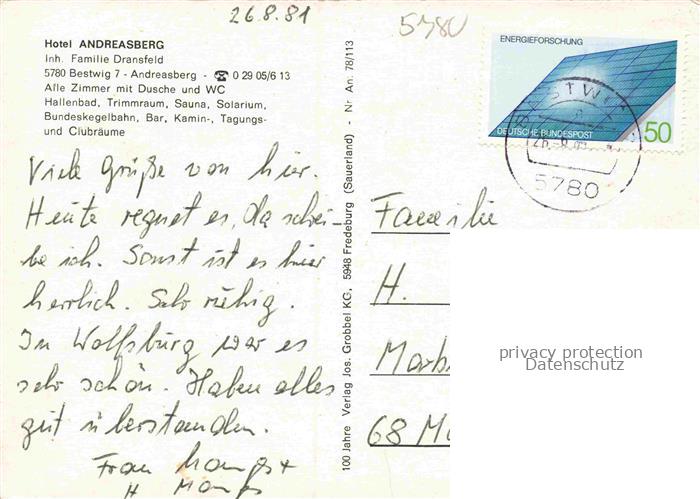 26.8.81
5780
Hotel ANDREASBERG
Inh. Familie Dransfeld
5780 Bestwig 7 - Andreasberg - ☎ 0 29 05/6 13
Alle Zimmer mit Dusche und WC
Hallenbad, Trimmraum, Sauna, Solarium,
Bundeskegelbahn, Bar, Kamin-, Tagungs-
und Clubräume
Viele Grüße von hier.
Heute regnet es, da schrei-
be ich. Sonst ist es hier
herrlich. Sehr ruhig.
In Wolfsburg war es
sehr schön. Haben alles
gut überstanden.
Frau
H
100 Jahre Verlag Jos. Grobbel KG, 5948 Fredeburg (Sauerland) - Nr An. 78/113
ENERGIEFORSCHUNG
DEUTSCHE BUNDESPOST
50
5780
Familie
H.
68
privacy protection
Datenschutz